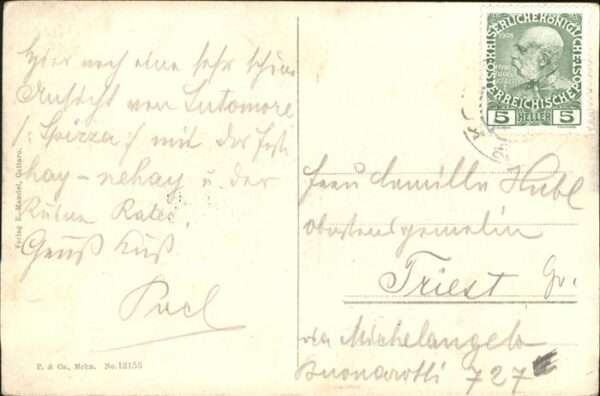 Hier noch eine sehr schöne
Ansicht von Sutomore
/: Spizza :/ mit der Festg
hay-nehay u. der
Ruine Ratac.
Gruß Kuß
Karl
Verlag E. Mandel, Cattaro.
P. & Co., Mchn. No. 12153
KAISERLICHEKÖNIGLICHE
ÖSTERREICHISCHE
1908
5 HELLER 5
Frau Camilla Hubl
Oberstensgemalin
Triest
via Michelangelo
Buonarotti 727